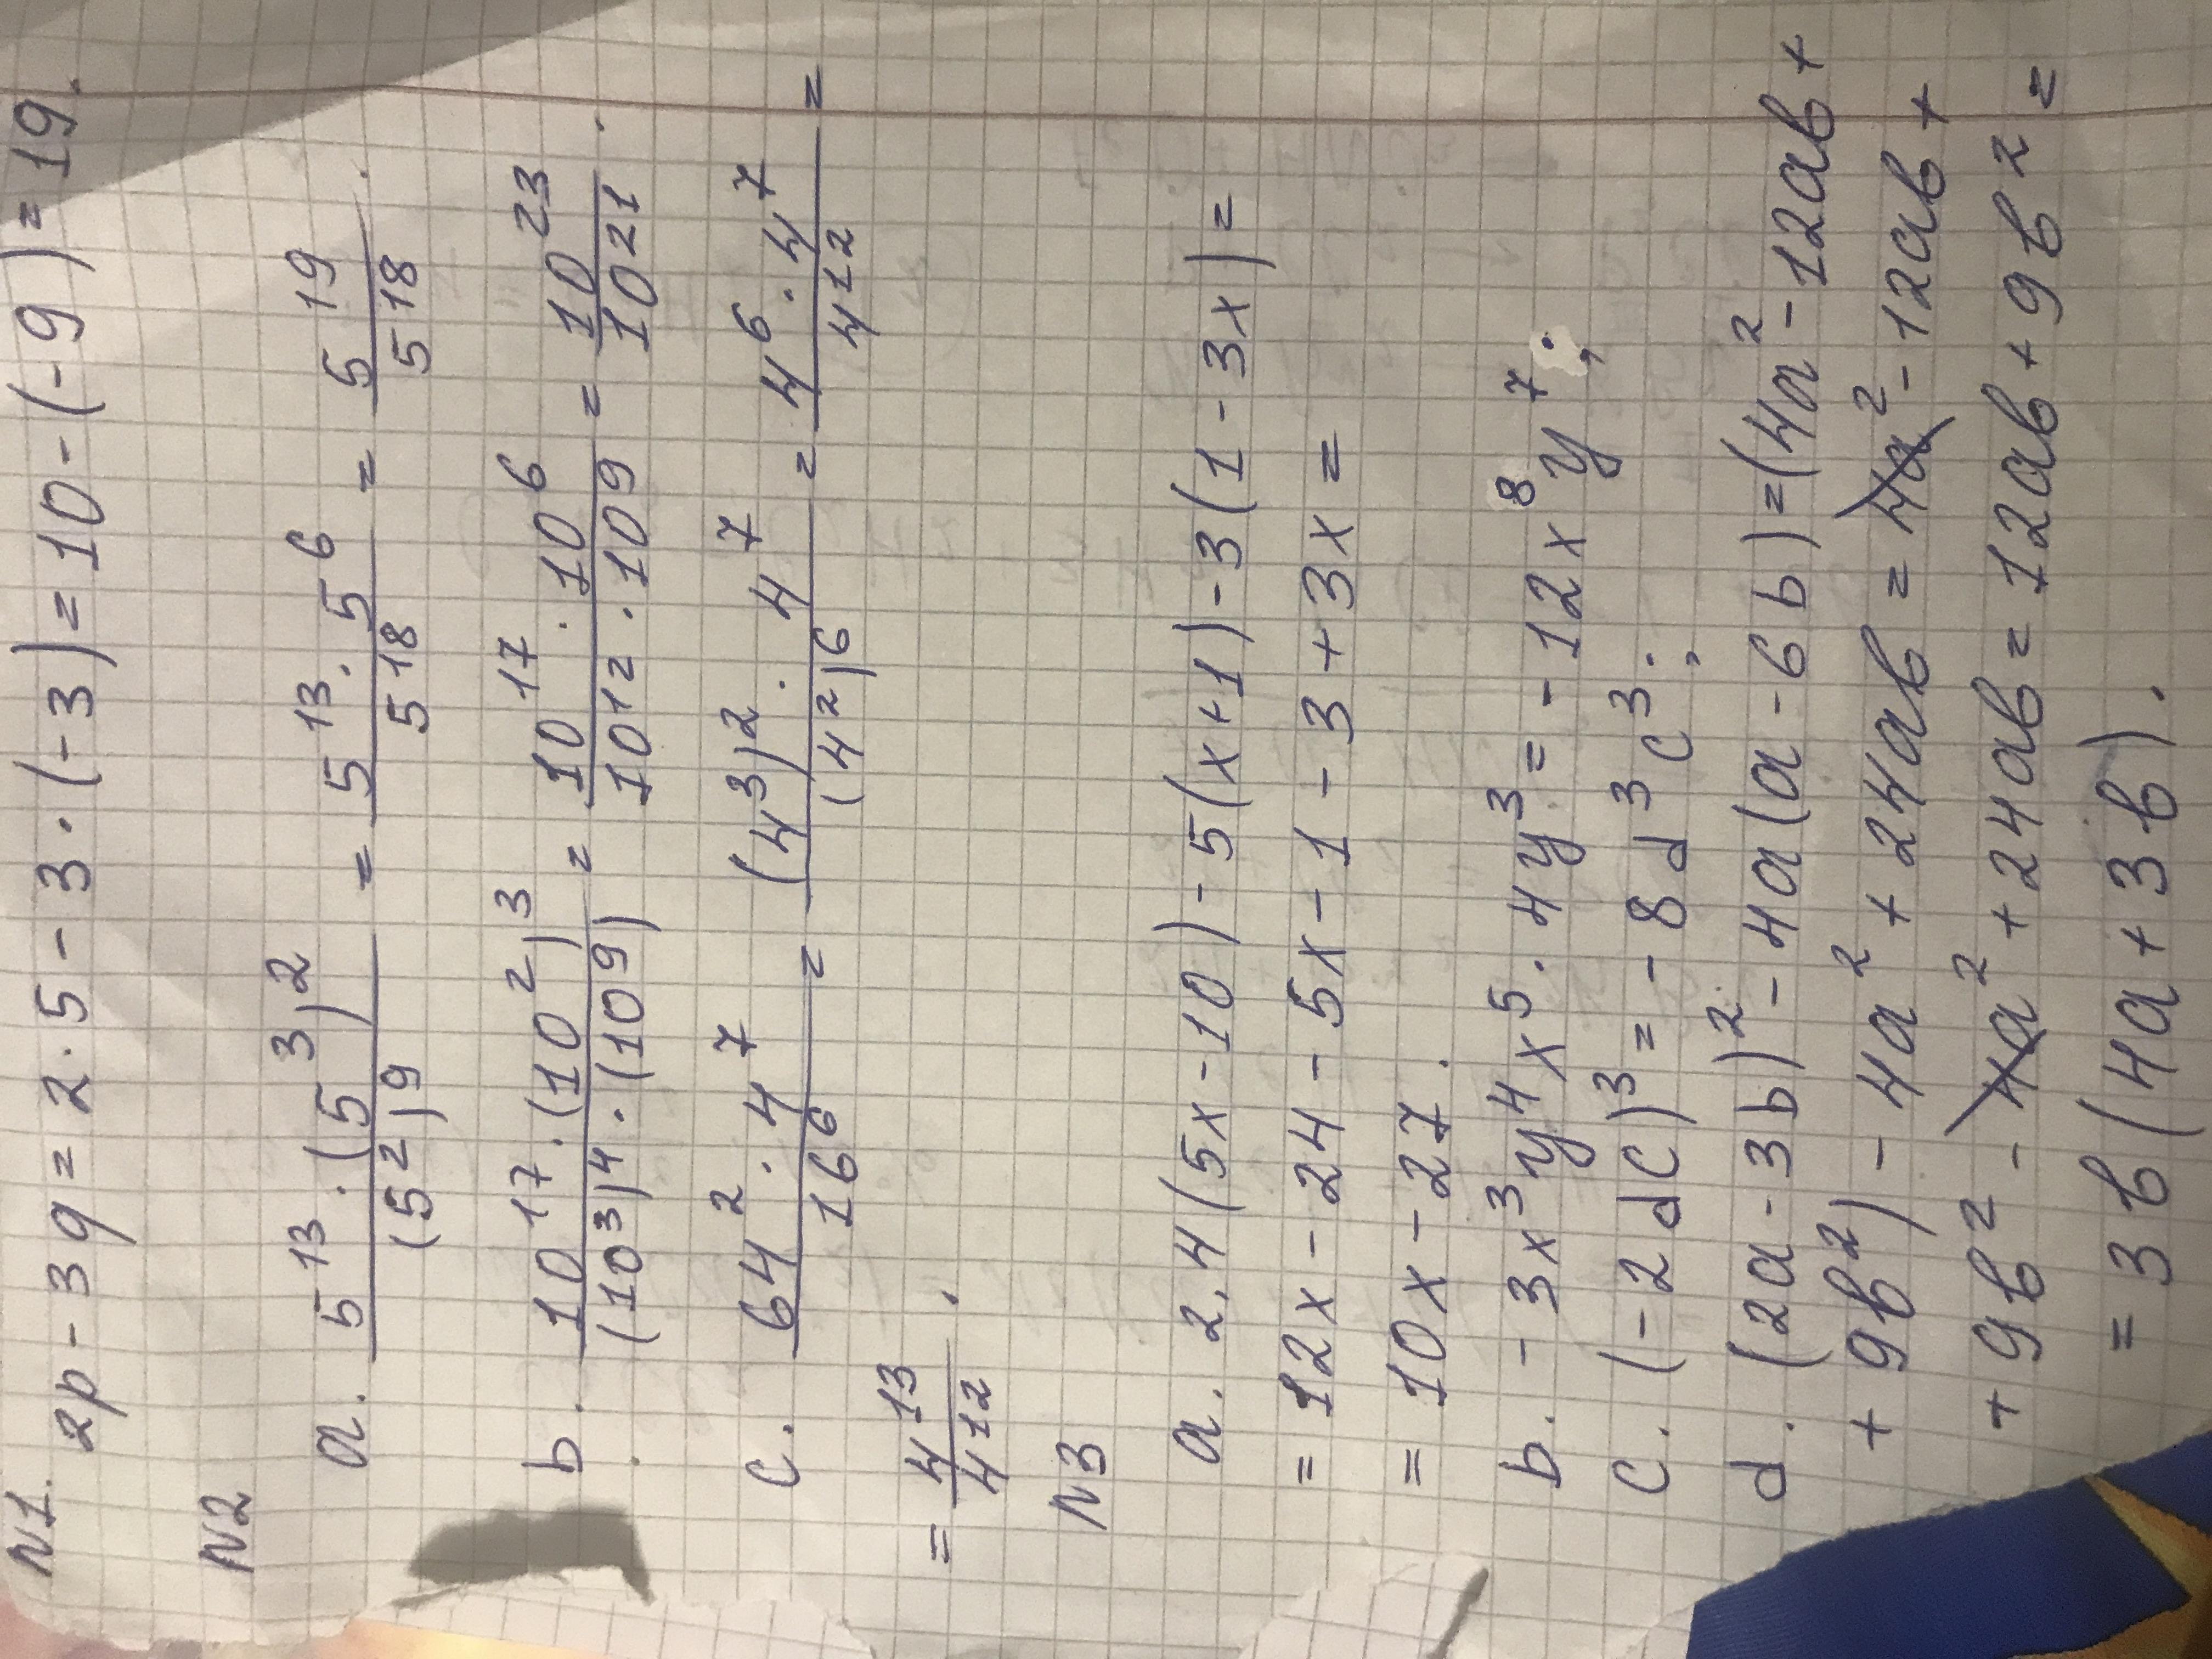 N1.
2p - 3q = 2 · 5 - 3 · (-3) = 10 - (-9) = 19.
N2
a. \frac{5^{13} · (5^3)^2}{(5^2)^9} = \frac{5^{13} · 5^6}{5^{18}} = \frac{5^{19}}{5^{18}}.
b. \frac{10^{17} · (10^2)^3}{(10^3)^4 · (10^9)} = \frac{10^{17} · 10^6}{10^{12} · 10^9} = \frac{10^{23}}{10^{21}}.
c. \frac{64^2 · 4^7}{16^6} = \frac{(4^3)^2 · 4^7}{(4^2)^6} = \frac{4^6 · 4^7}{4^{12}} =
= \frac{4^{13}}{4^{12}}.
N3
a. 2,4(5x - 10) - 5(x + 1) - 3(1 - 3x) =
= 12x - 24 - 5x - 1 - 3 + 3x =
= 10x - 27.
b. - 3x^3y^4x^5 · 4y^3 = - 12x^8y^7;
c. (-2dc)^3 = - 8d^3c^3;
d. (2a - 3b)^2 - 4a(a - 6b) = (4a^2 - 12ab +
+ 9b^2) - 4a^2 + 24ab = 4a^2 - 12ab +
+ 9b^2 - 4a^2 + 24ab = 12ab + 9b^2 =
= 3b(4a + 3b).